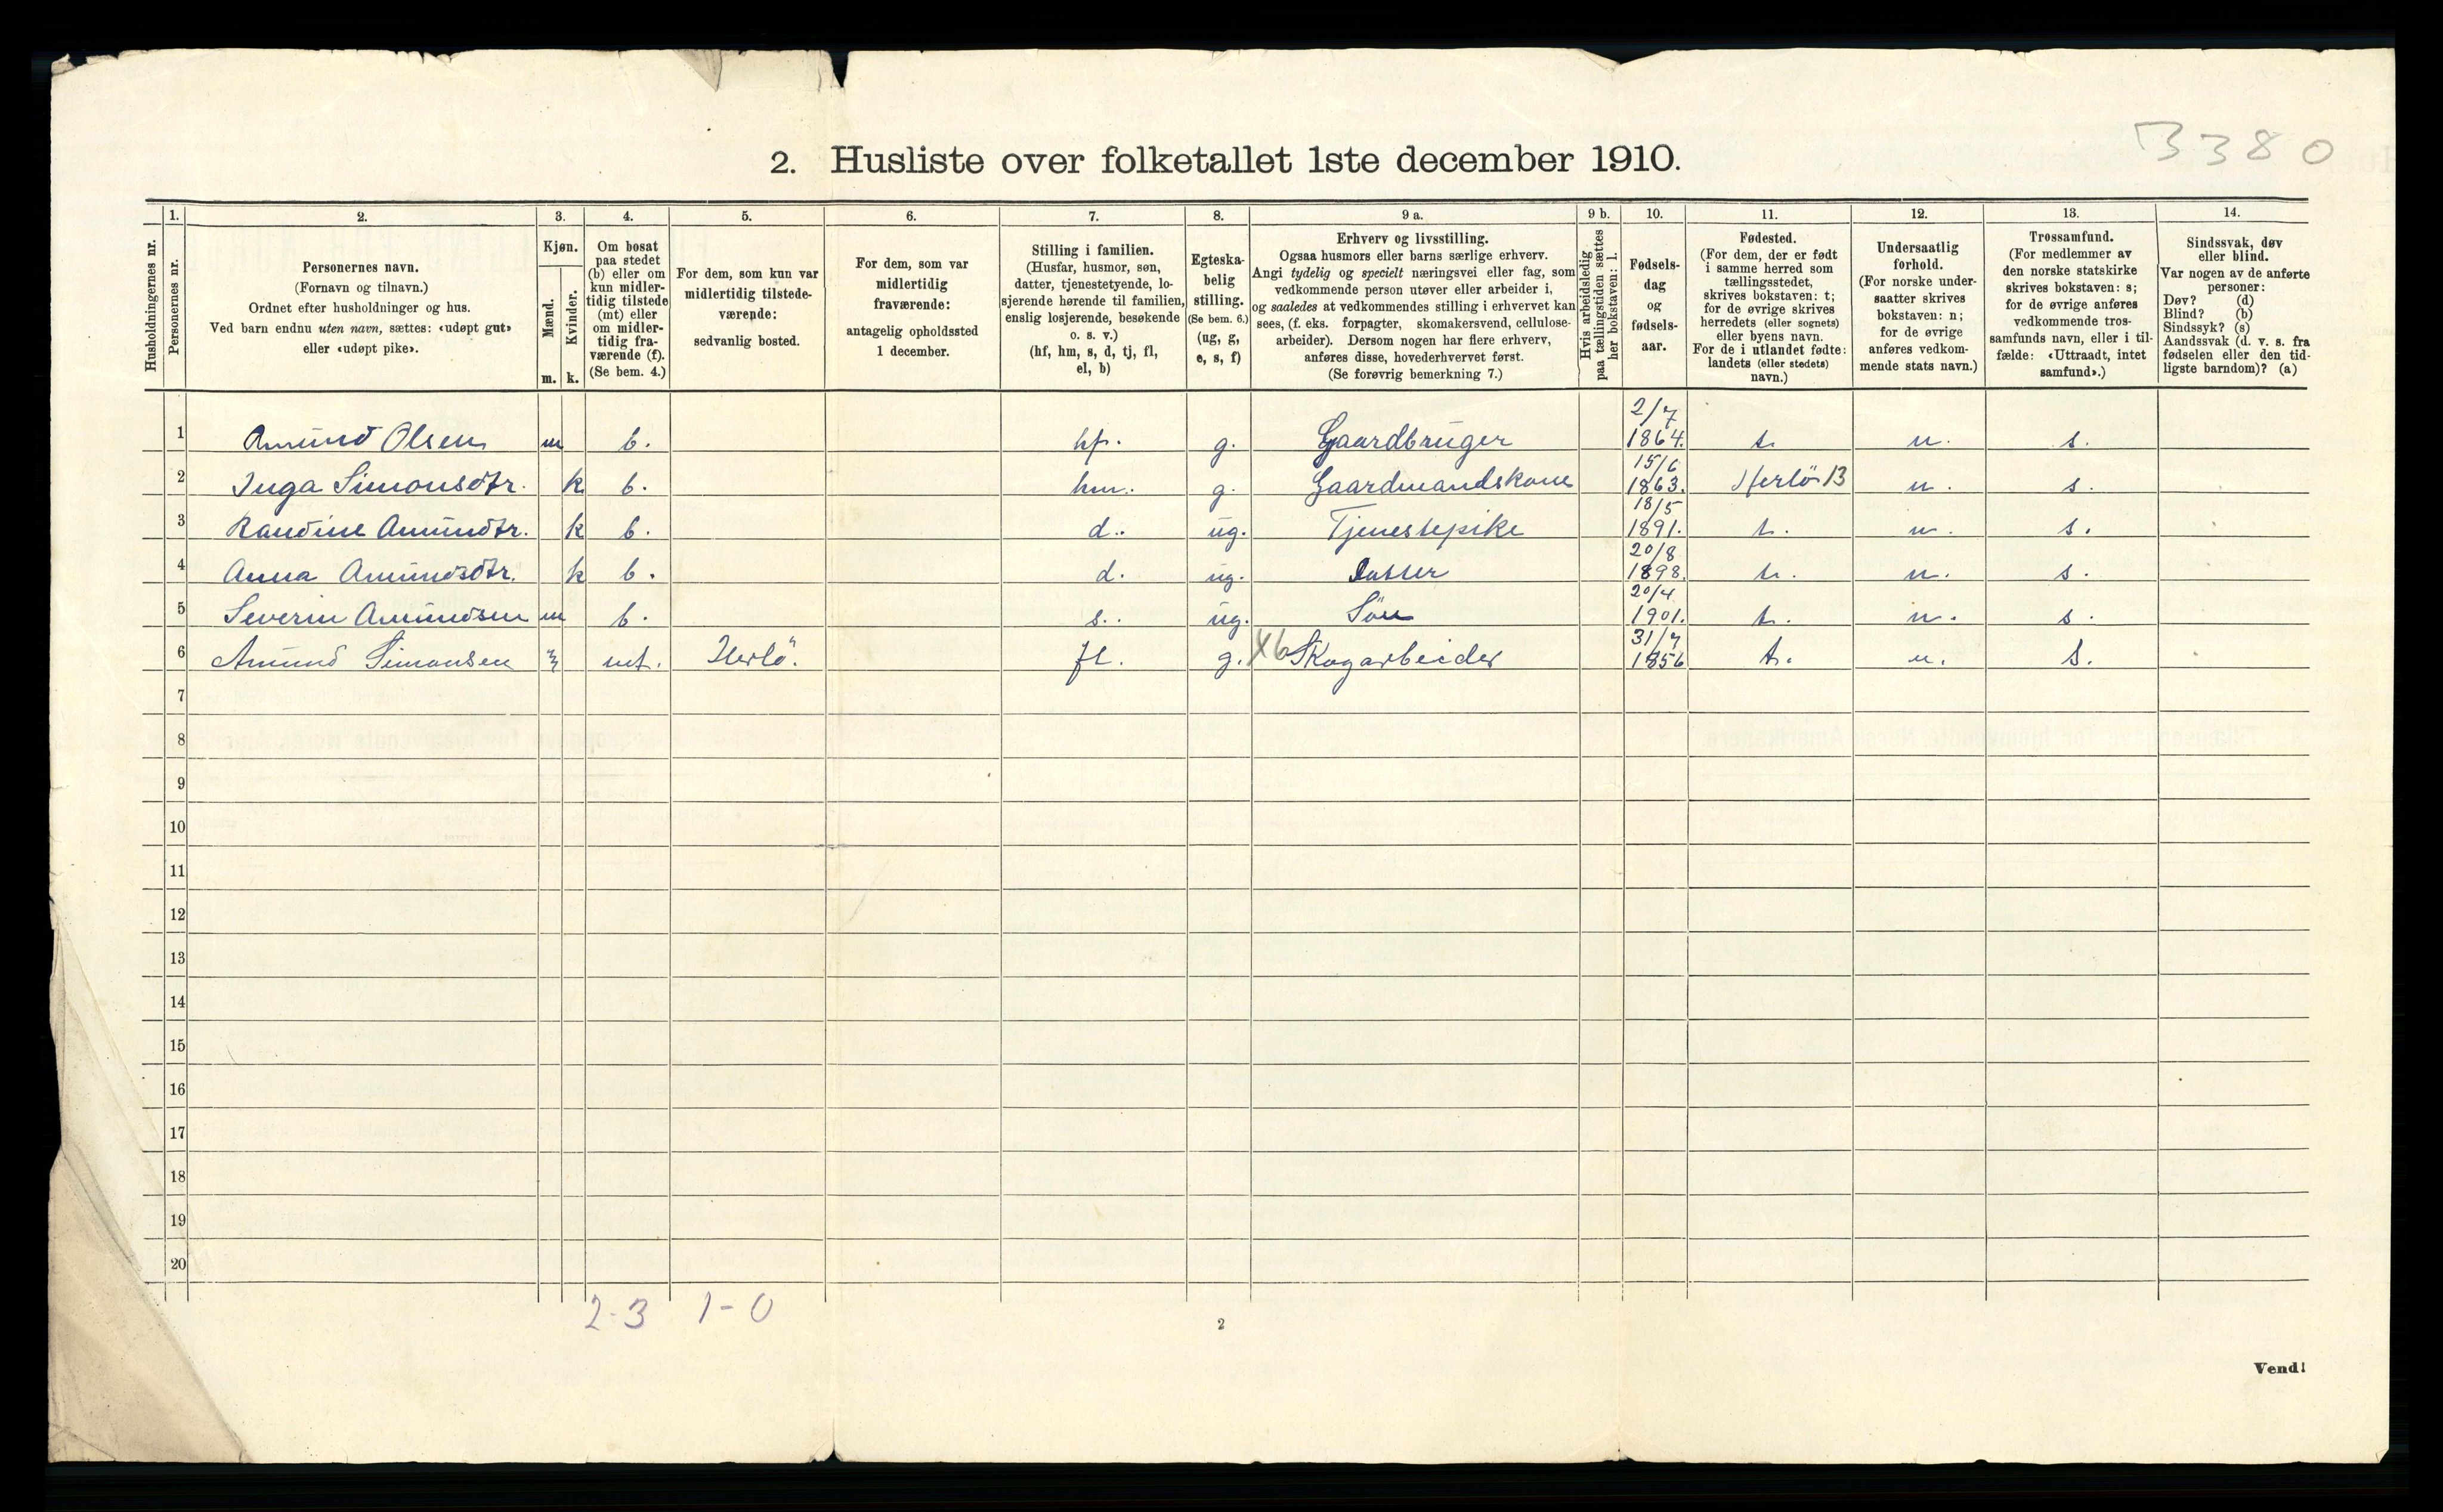 3380
2. Husliste over folketallet 1ste december 1910.
Husholdningernes nr.
1.
Personernes nr.
2.
Personernes navn.
(Fornavn og tilnavn.)
Ordnet efter husholdninger og hus.
Ved barn endnu uten navn, sættes: «udøpt gut»
eller «udøpt pike».
3.
Kjøn.
Mænd.
m.
Kvinder.
k.
4.
Om bosat
paa stedet
(b) eller om
kun midler-
tidig tilstede
(mt) eller
om midler-
tidig fra-
værende (f).
(Se bem. 4.)
5.
For dem, som kun var
midlertidig tilstede-
værende:
sedvanlig bosted.
6.
For dem, som var
midlertidig
fraværende:
antagelig opholdssted
1 december.
7.
Stilling i familien.
(Husfar, husmor, søn,
datter, tjenestetyende, lo-
sjerende hørende til familien,
enslig losjerende, besøkende
o. s. v.)
(hf, hm, s, d, tj, fl,
el, b)
8.
Egteska-
belig
stilling.
(Se bem. 6.)
(ug, g,
e, s, f)
9 a.
Erhverv og livsstilling.
Ogsaa husmors eller barns særlige erhverv.
Angi tydelig og specielt næringsvei eller fag, som
vedkommende person utøver eller arbeider i,
og saaledes at vedkommendes stilling i erhvervet kan
sees, (f. eks. forpagter, skomakersvend, cellulose-
arbeider). Dersom nogen har flere erhverv,
anføres disse, hovederhvervet først.
(Se forøvrig bemerkning 7.)
9 b.
Hvis arbeidsledig
paa tællingstiden sættes
her bokstaven: l.
10.
Fødsels-
dag
og
fødsels-
aar.
11.
Fødested.
(For dem, der er født
i samme herred som
tællingsstedet,
skrives bokstaven: t;
for de øvrige skrives
herredets (eller sognets)
eller byens navn.
For de i utlandet fødte:
landets (eller stedets)
navn.)
12.
Undersaatlig
forhold.
(For norske under-
saatter skrives
bokstaven: n;
for de øvrige
anføres vedkom-
mende stats navn.)
13.
Trossamfund.
(For medlemmer av
den norske statskirke
skrives bokstaven: s;
for de øvrige anføres
vedkommende tros-
samfunds navn, eller i til-
fælde: «Uttraadt, intet
samfund».)
14.
Sindssvak, døv
eller blind.
Var nogen av de anførte
personer:
Døv? (d)
Blind? (b)
Sindssyk? (s)
Aandssvak (d. v. s. fra
fødselen eller den tid-
ligste barndom)? (a)
1 Amund Olsen m b. hf. g. Gaardbruger 2/7 1864. t. n. s.
2 Inga Simonsdtr. k b. hm. g. Gaardmandskone 15/6 1863. Herlö 13 n. s.
3 Randine Amundtr. k b. d. ug. Tjenestepike 18/5 1891. t. n. s.
4 Anna Amundsdtr. k b. d. ug. Datter 20/8 1898. t. n. s.
5 Severin Amundsen m b. s. ug. Sön 20/4 1901. t. n. s.
6 Amund Simonsen m mt. Herlö. fl. g. X6 Skogarbeider 31/7 1856 t. n. s.
7
8
9
10
11
12
13
14
15
16
17
18
19
20
2-3 1-0
2
Vend!